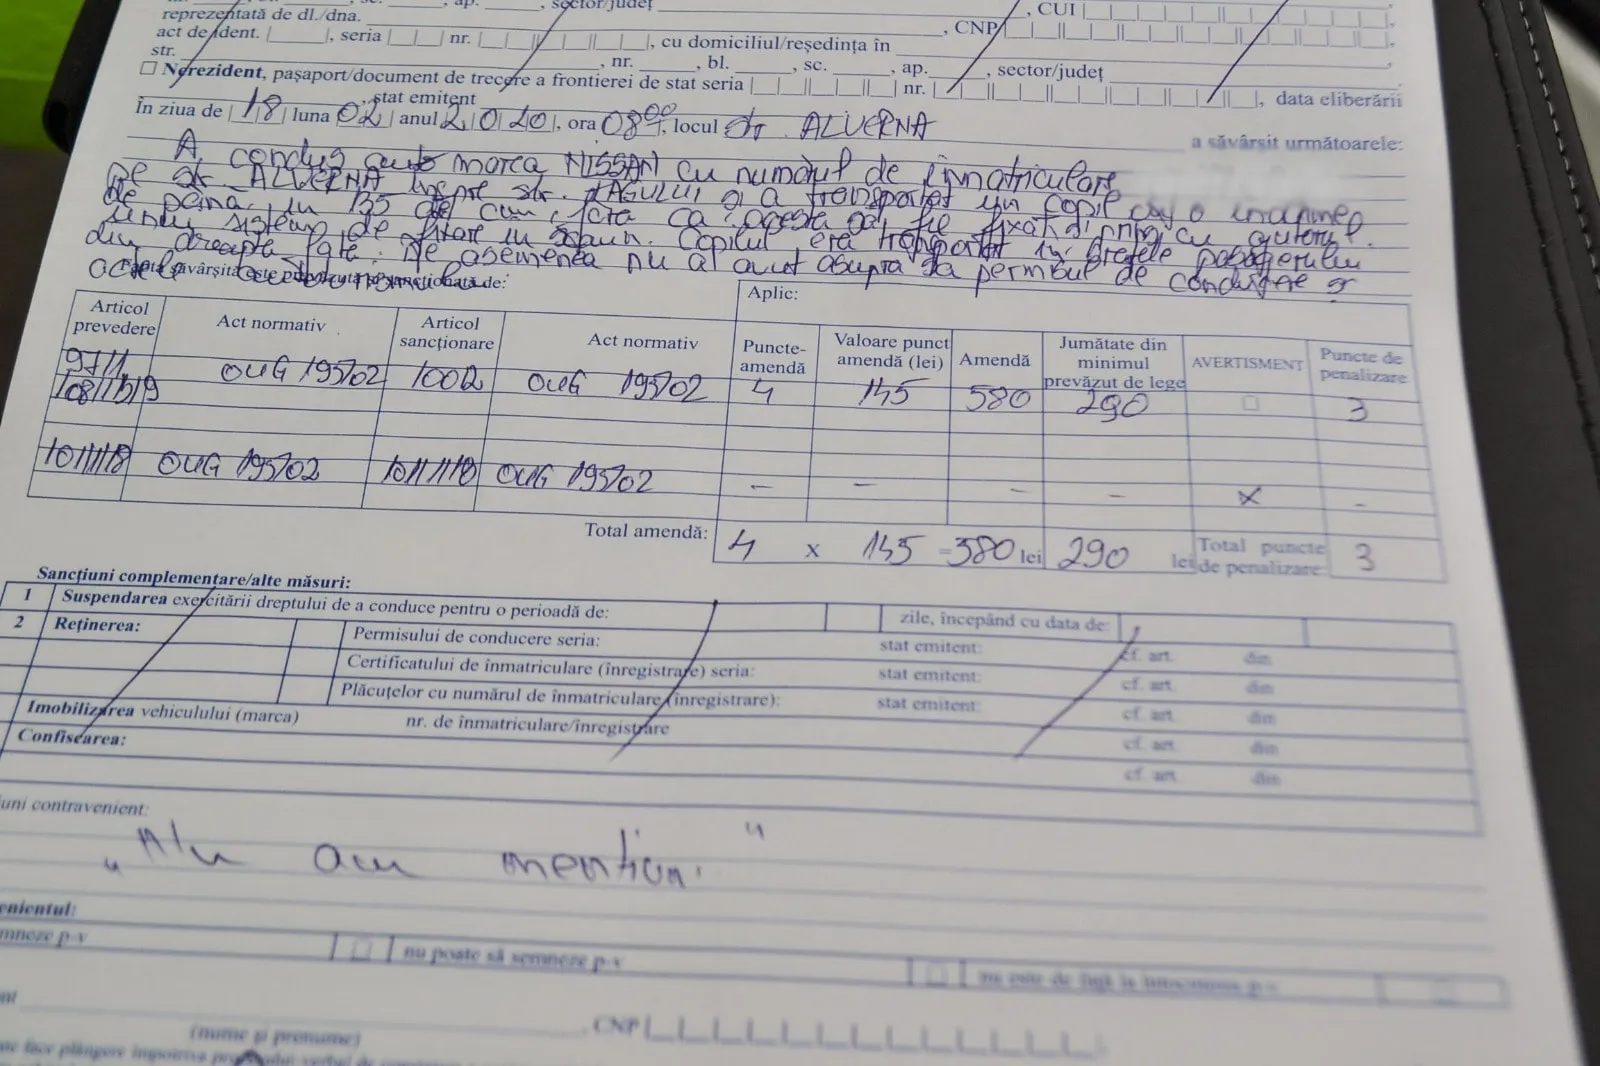 ap.
sector/județ
reprezentată de dl./dna. , CUI
act de ident. , seria nr. , cu domiciliul/reședința în , CNP
str. , nr. , bl. , sc. , ap. , sector/județ
Nerezident, pașaport/document de trecere a frontierei de stat seria nr. , data eliberării
, stat emitent
În ziua de 18 luna 02 anul 2020, ora 08 00, locul str ALVERNA
a săvârșit următoarele:
A condus auto marca NISSAN cu numărul de înmatriculare
pe str. ALVERNA înspre str. FAGULUI și a transportat un copil cu o înălțime
de până în 135 de cm, fără ca acesta să fie fixat cu ajutorul
unui sistem de fixare în scaun. Copilul era transportat în brațele pasagerului
din dreapta față. De asemenea nu a avut asupra sa permisul de conducere și
Fapta săvârșită este prevăzută și sancționată de:
Aplic:
Articol prevedere Act normativ Articol sancționare Act normativ Puncte-amendă Valoare punct amendă (lei) Amendă Jumătate din minimul prevăzut de lege AVERTISMENT Puncte de penalizare
97/1 OUG 195/02 100/2 OUG 195/02 4 145 580 290 3
101/1/18 OUG 195/02 101/1/18 OUG 195/02 – – – – x –
Total amendă: 4 x 145 = 580 lei 290 lei Total puncte de penalizare: 3
Sancțiuni complementare/alte măsuri:
1 Suspendarea exercitării dreptului de a conduce pentru o perioadă de: zile, începând cu data de:
2 Reținerea: Permisului de conducere seria: stat emitent: cf. art. din
Certificatului de înmatriculare (înregistrare) seria: stat emitent: cf. art. din
Plăcuțelor cu numărul de înmatriculare (înregistrare): stat emitent: cf. art. din
Imobilizarea vehiculului (marca) nr. de înmatriculare/înregistrare cf. art. din
Confiscarea: cf. art. din
uni contravenient:
„Nu am mențiuni"
enientul:
mneze p-v nu poate să semneze p-v
(nume și prenume) , CNP